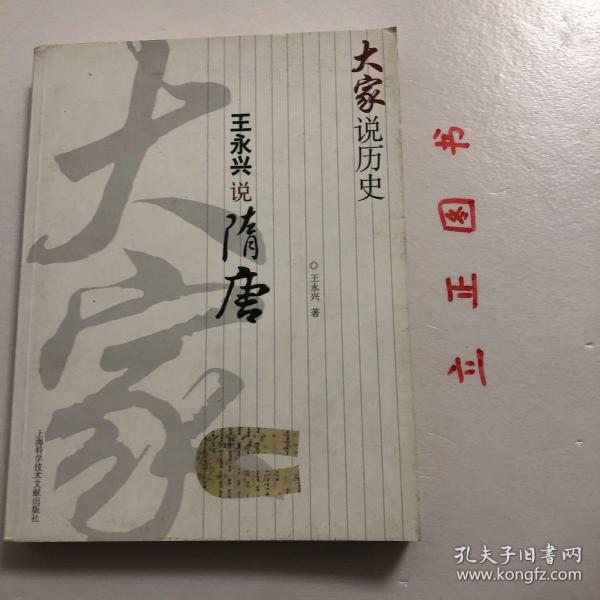 大家说历史
王永兴说隋唐
○王永兴 著
大家
上海科学技术文献出版社
立正图书
孔夫子旧书网
www.kongfz.com